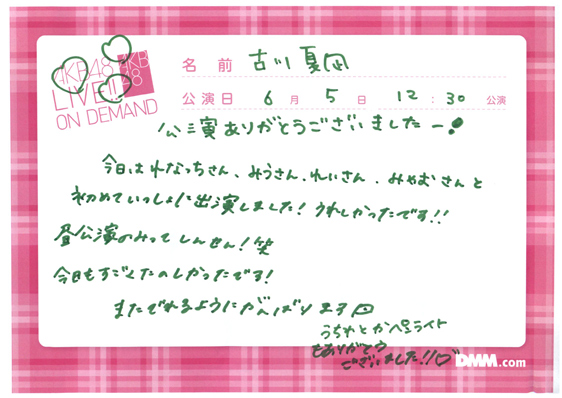 AKB48
LIVE!!
ON DEMAND
AKB
48
名前 古川夏凪
公演日 6月5日 12:30 公演
公演ありがとうございましたー!
今日はれなっちさん、みうさん、れいさん、みゃおさんと
初めていっしょに出演しました!うれしかったです!!
昼公演のみってしんせん!笑
今日もすごくたのしかったです!
またでれるようにがんばります
うちわとかペンライト
もありがとう
ございました!!♡
DMM.com